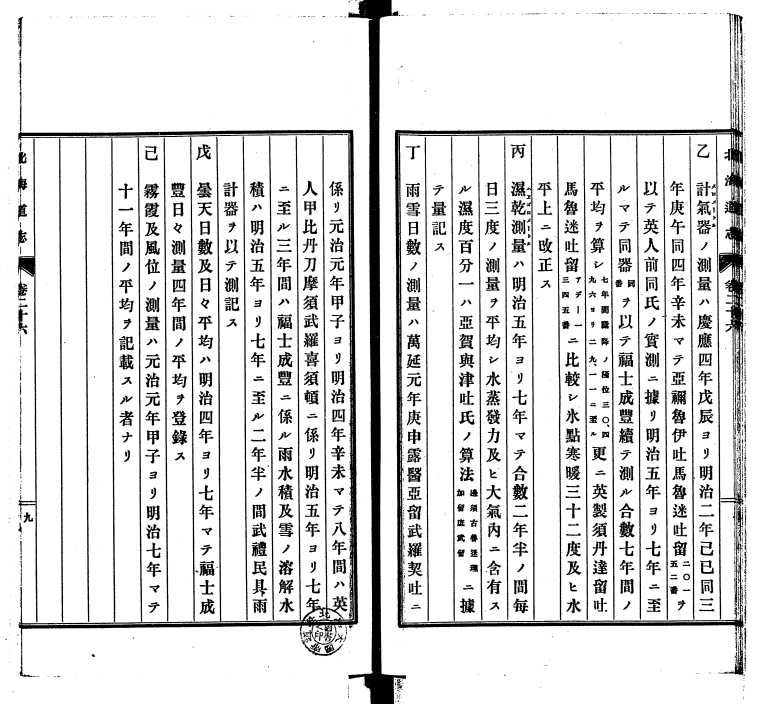 北海道志 卷二十六
乙 計氣器ノ測量ハ慶應四年戊辰ヨリ明治二年己巳同三
年庚午同四年辛未マテ亞禰魯伊吐馬魯迷吐留二〇一五二番ヲ
以テ英人前同氏ノ實測ニ據リ明治五年ヨリ七年ニ至
ルマテ同器同番ヲ以テ福士成豐續テ測ル合數七年間ノ
平均ヲ算シ七年間騰降ノ極位三〇、四九六ヨリ二九、一一ニ至ル更ニ英製須丹達留吐
馬魯迷吐留アデー一三四五番ニ比較シ氷點寒暖三十二度及ヒ水
平上ニ改正ス
丙 濕乾測量ハ明治五年ヨリ七年マテ合數二年半ノ間每
日三度ノ測量ヲ平均シ水蒸發力及ヒ大氣內ニ含有ス
ル濕度百分一ハ亞賀與津吐氏ノ算法ニ據
テ量記ス
丁 雨雪日數ノ測量ハ萬延元年庚申露醫亞留武羅契吐ニ
係リ元治元年甲子ヨリ明治四年辛未マテ八年間ハ英
人甲比丹刀摩須武羅喜須頓ニ係リ明治五年ヨリ七年
ニ至ル三年間ハ福士成豐ニ係ル雨水積及雪ノ溶解水
積ハ明治五年ヨリ七年ニ至ル二年半ノ間武禮民具雨
計器ヲ以テ測記ス
戊 曇天日數及日々平均ハ明治四年ヨリ七年マテ福士成
豐日々測量四年間ノ平均ヲ登錄ス
己 霧霞及風位ノ測量ハ元治元年甲子ヨリ明治七年マテ
十一年間ノ平均ヲ記載スル者ナリ
北海道志 卷二十六
九